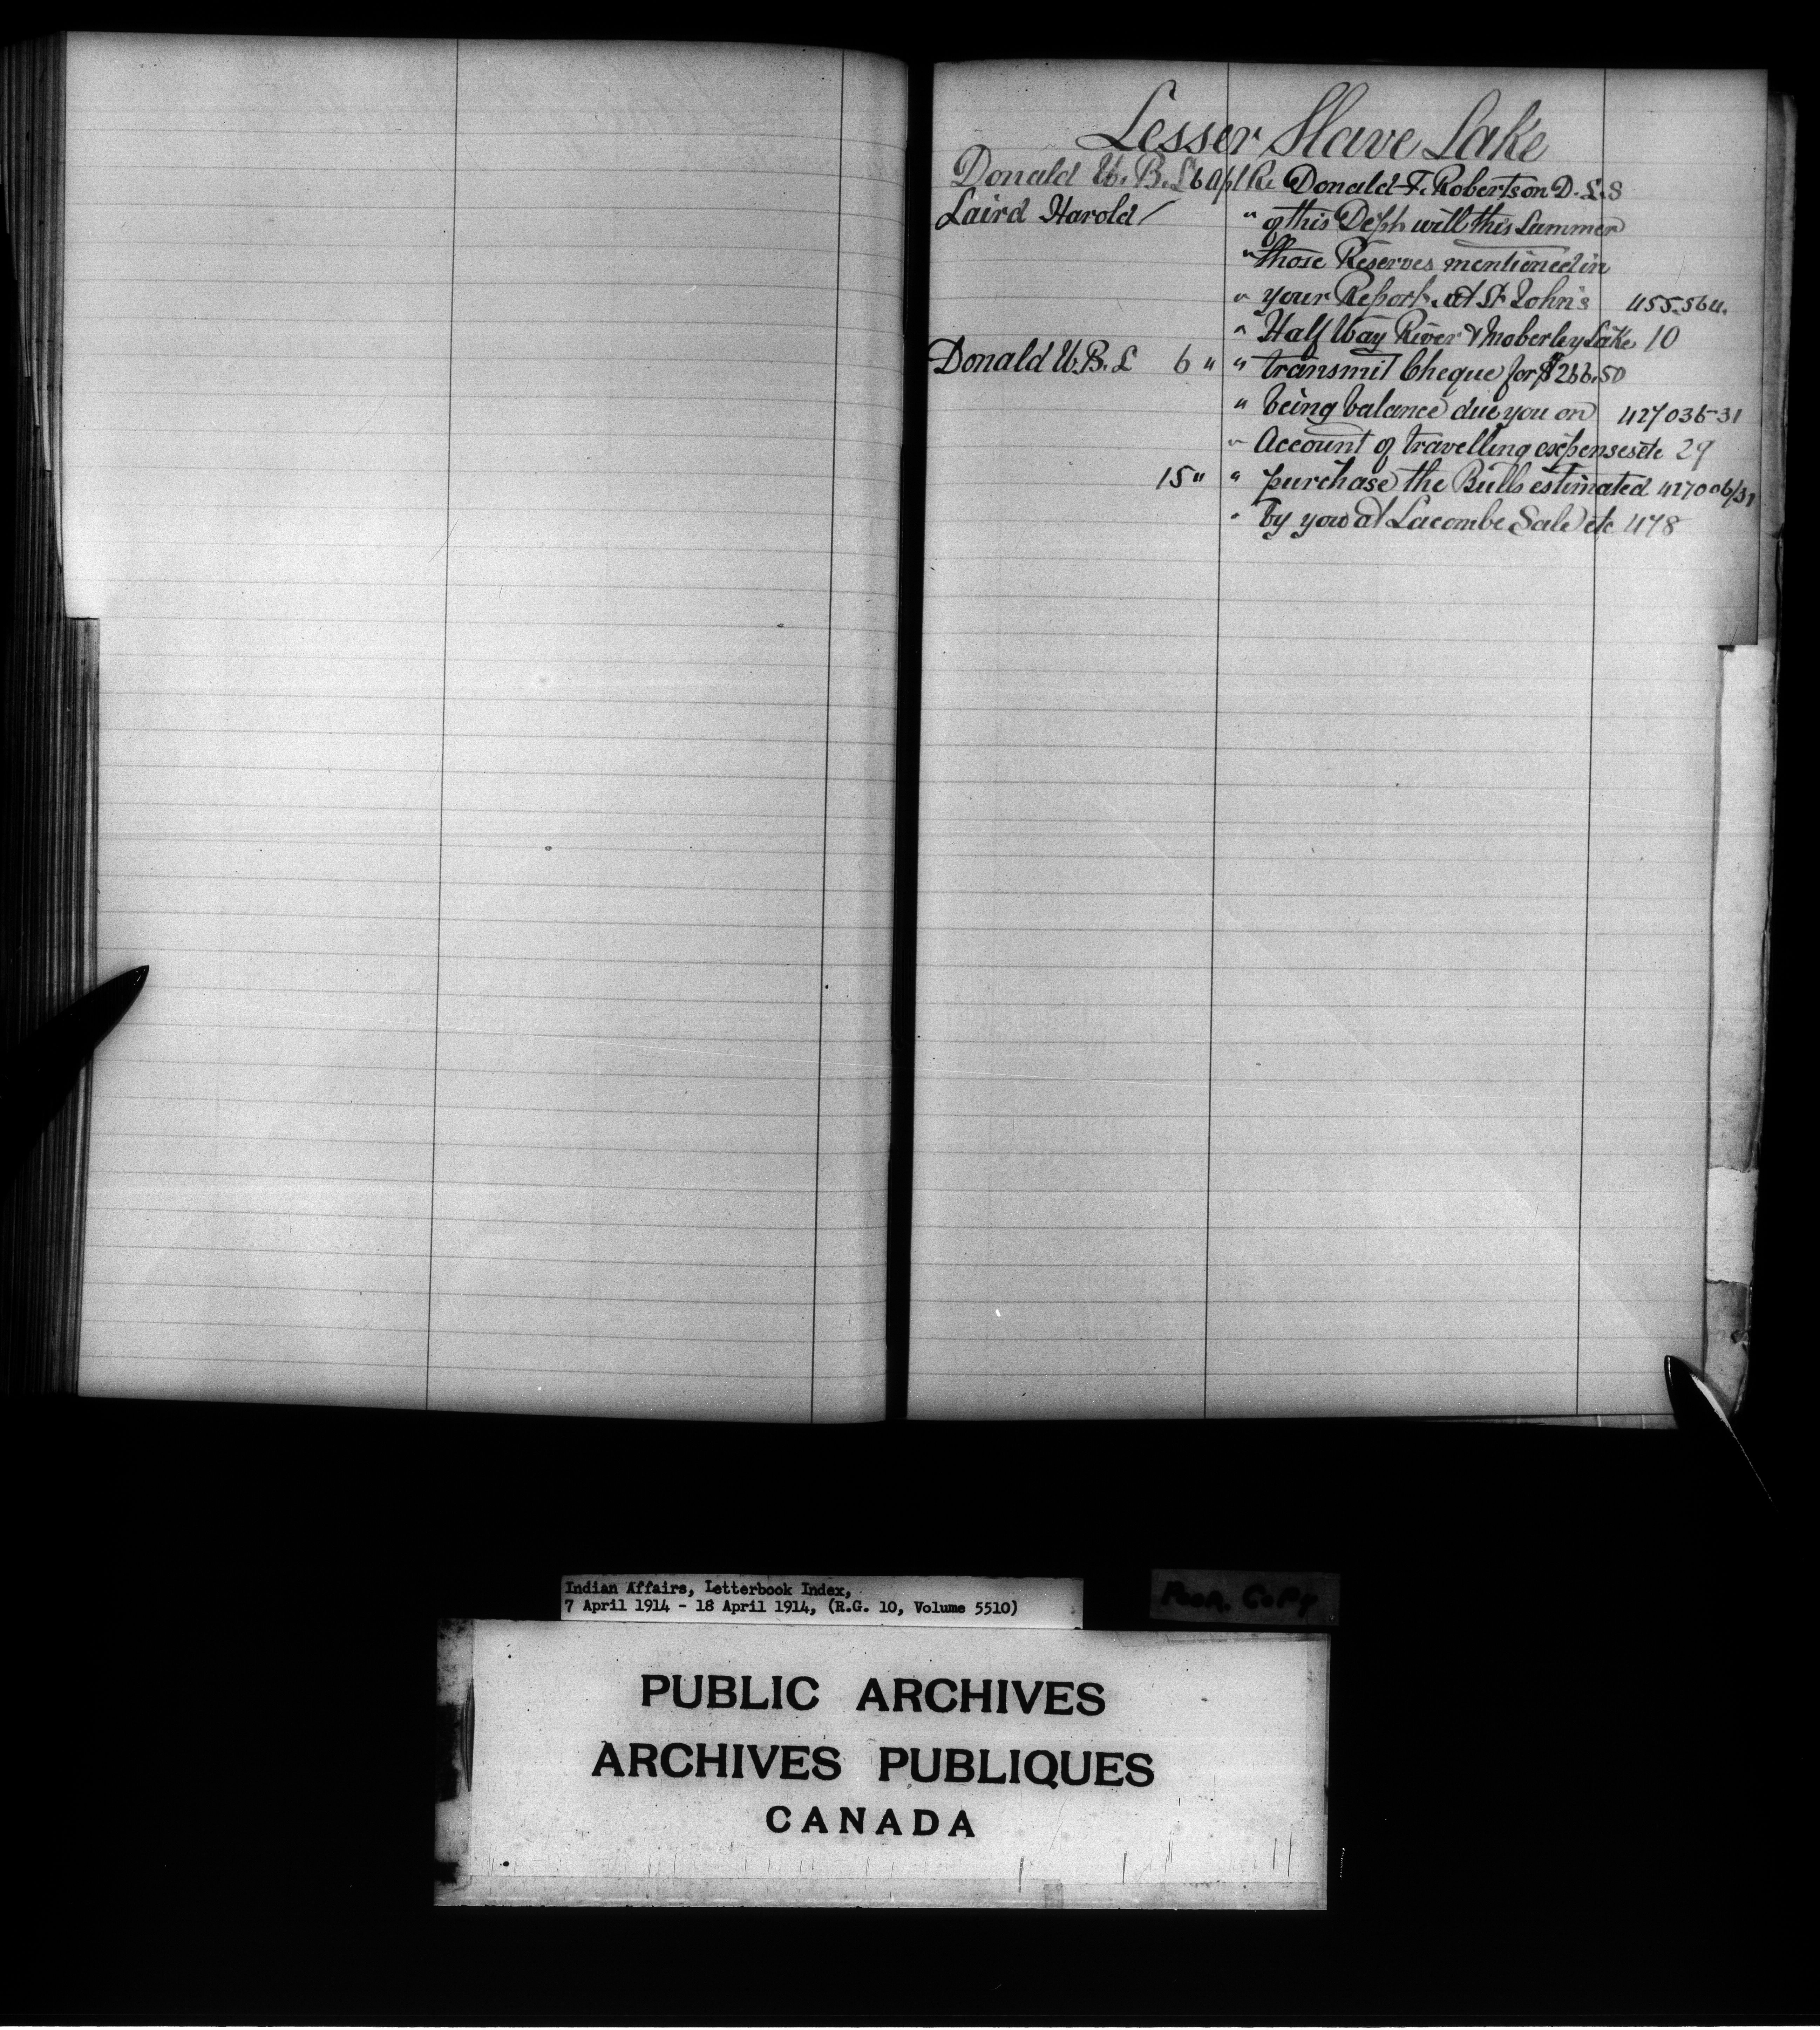 Lesser Slave Lake
Donald W.B.L 6 Apl Re Donald F. Robertson D.L.S
Laird Harold / " of this Dept will this Summer
" those Reserves mentioned in
" your Report, at St John's 455.564.
" Half Way River & Moberley Lake 10
Donald W.B.L 6 " " transmit Cheque for $266.50
" being balance due you on 427036-31
" Account of travelling expenses etc 29
15 " " purchase the Bulls estimated 427006/31
" by you at Lacombe Sale etc 478
Indian Affairs, Letterbook Index,
7 April 1914 - 18 April 1914, (R.G. 10, Volume 5510)
Poor. Copy
PUBLIC ARCHIVES
ARCHIVES PUBLIQUES
CANADA